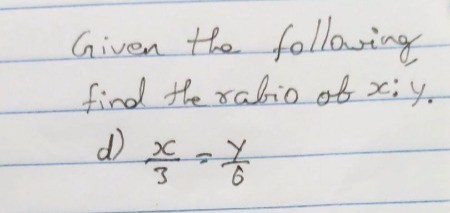 Given the following
find the ratio of x:y.
d) x/3 = y/6